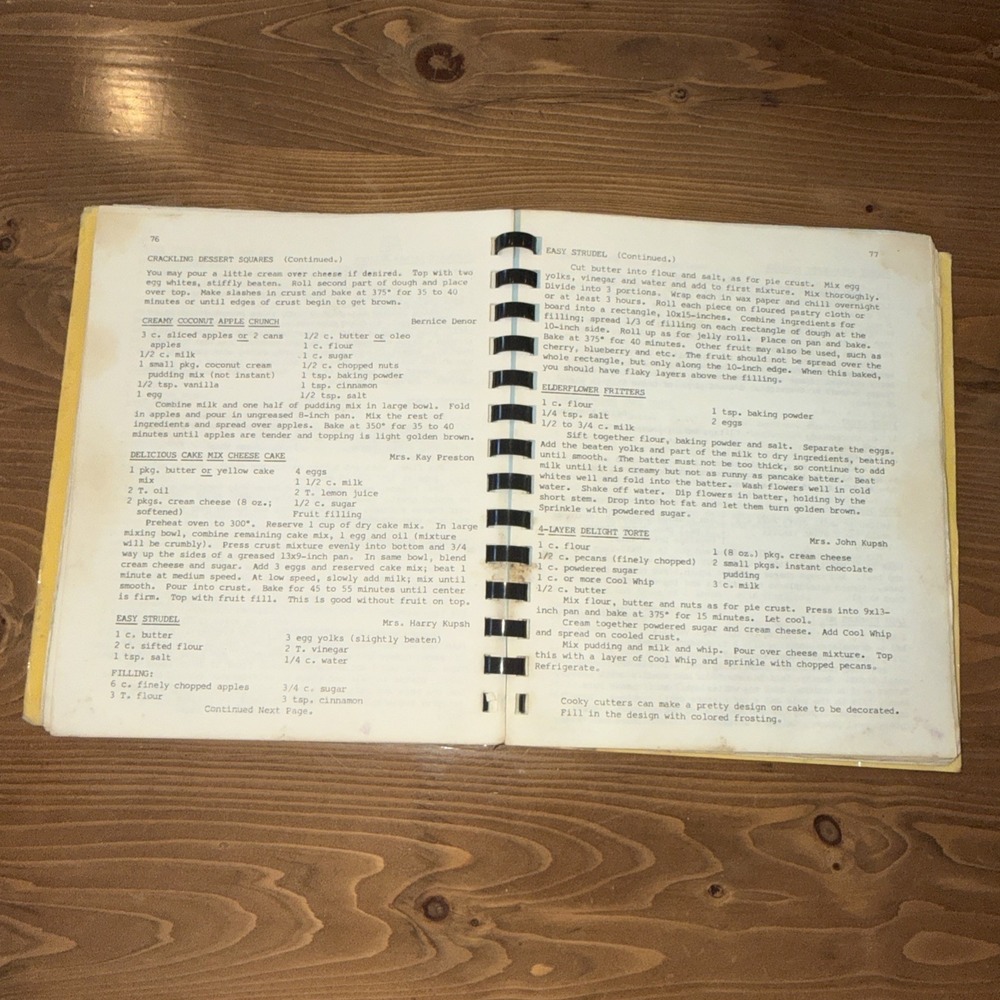 76
CRACKLING DESSERT SQUARES (Continued.)
You may pour a little cream over cheese if desired. Top with two
egg whites, stiffly beaten. Roll second part of dough and place
over top. Make slashes in crust and bake at 375° for 35 to 40
minutes or until edges of crust begin to get brown.
CREAMY COCONUT APPLE CRUNCH Bernice Denor
3 c. sliced apples or 2 cans 1/2 c. butter or oleo
apples 1 c. flour
1/2 c. milk 1 c. sugar
1 small pkg. coconut cream 1/2 c. chopped nuts
pudding mix (not instant) 1 tsp. baking powder
1/2 tsp. vanilla 1 tsp. cinnamon
1 egg 1/2 tsp. salt
Combine milk and one half of pudding mix in large bowl. Fold
in apples and pour in ungreased 8-inch pan. Mix the rest of
ingredients and spread over apples. Bake at 350° for 35 to 40
minutes until apples are tender and topping is light golden brown.
DELICIOUS CAKE MIX CHEESE CAKE Mrs. Kay Preston
1 pkg. butter or yellow cake 4 eggs
mix 1 1/2 c. milk
2 T. oil 2 T. lemon juice
2 pkgs. cream cheese (8 oz.; 1/2 c. sugar
softened) Fruit filling
Preheat oven to 300°. Reserve 1 cup of dry cake mix. In large
mixing bowl, combine remaining cake mix, 1 egg and oil (mixture
will be crumbly). Press crust mixture evenly into bottom and 3/4
way up the sides of a greased 13x9-inch pan. In same bowl, blend
cream cheese and sugar. Add 3 eggs and reserved cake mix; beat 1
minute at medium speed. At low speed, slowly add milk; mix until
smooth. Pour into crust. Bake for 45 to 55 minutes until center
is firm. Top with fruit fill. This is good without fruit on top.
EASY STRUDEL Mrs. Harry Kupsh
1 c. butter 3 egg yolks (slightly beaten)
2 c. sifted flour 2 T. vinegar
1 tsp. salt 1/4 c. water
FILLING:
6 c. finely chopped apples 3/4 c. sugar
3 T. flour 3 tsp. cinnamon
Continued Next Page.
77
EASY STRUDEL (Continued.)
Cut butter into flour and salt, as for pie crust. Mix egg
yolks, vinegar and water and add to first mixture. Mix thoroughly.
Divide into 3 portions. Wrap each in wax paper and chill overnight
or at least 3 hours. Roll each piece on floured pastry cloth or
board into a rectangle, 10x15-inches. Combine ingredients for
filling; spread 1/3 of filling on each rectangle of dough at the
10-inch side. Roll up as for jelly roll. Place on pan and bake.
Bake at 375° for 40 minutes. Other fruit may also be used, such as
cherry, blueberry and etc. The fruit should not be spread over the
whole rectangle, but only along the 10-inch edge. When this baked,
you should have flaky layers above the filling.
ELDERFLOWER FRITTERS
1 c. flour 1 tsp. baking powder
1/4 tsp. salt 2 eggs
1/2 to 3/4 c. milk
Sift together flour, baking powder and salt. Separate the eggs.
Add the beaten yolks and part of the milk to dry ingredients, beating
until smooth. The batter must not be too thick, so continue to add
milk until it is creamy but not as runny as pancake batter. Beat
whites well and fold into the batter. Wash flowers well in cold
water. Shake off water. Dip flowers in batter, holding by the
short stem. Drop into hot fat and let them turn golden brown.
Sprinkle with powdered sugar.
4-LAYER DELIGHT TORTE Mrs. John Kupsh
1 c. flour 1 (8 oz.) pkg. cream cheese
1/2 c. pecans (finely chopped) 2 small pkgs. instant chocolate
1 c. powdered sugar pudding
1 c. or more Cool Whip 3 c. milk
1/2 c. butter
Mix flour, butter and nuts as for pie crust. Press into 9x13-
inch pan and bake at 375° for 15 minutes. Let cool.
Cream together powdered sugar and cream cheese. Add Cool Whip
and spread on cooled crust.
Mix pudding and milk and whip. Pour over cheese mixture. Top
this with a layer of Cool Whip and sprinkle with chopped pecans.
Refrigerate.
Cooky cutters can make a pretty design on cake to be decorated.
Fill in the design with colored frosting.